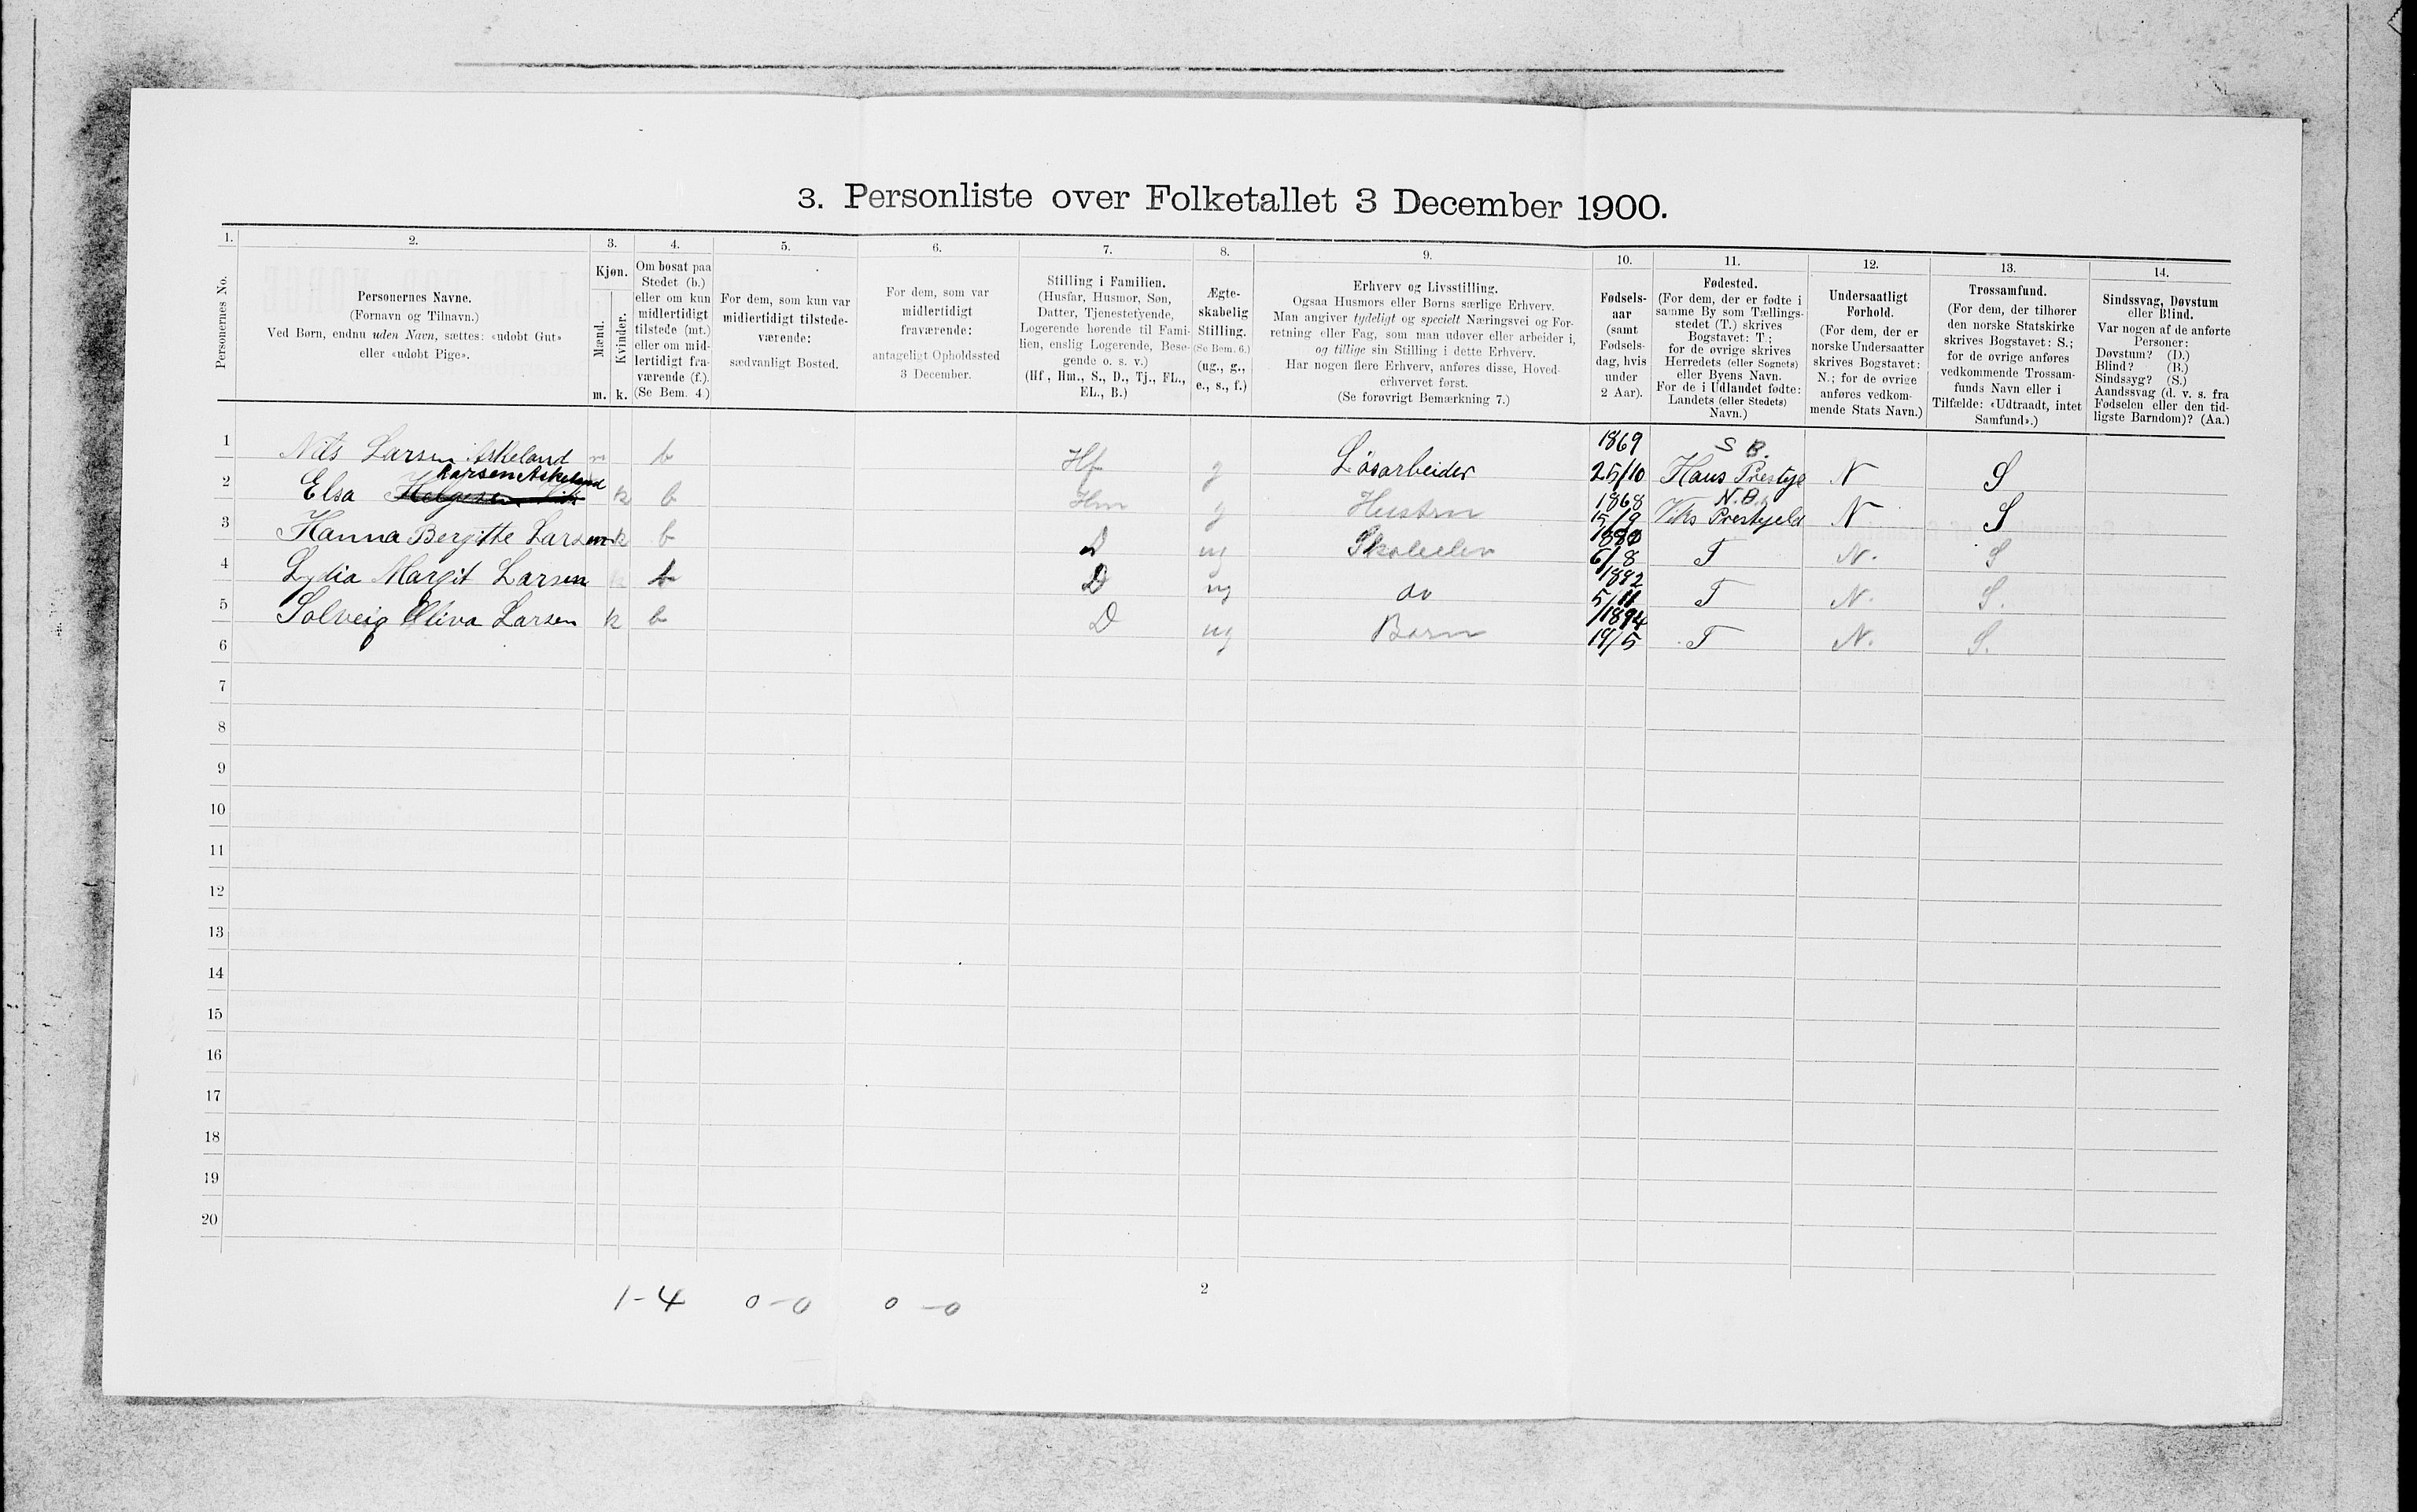 3. Personliste over Folketallet 3 December 1900.
1. 2. 3. 4. 5. 6. 7. 8. 9. 10. 11. 12. 13. 14.
Personernes No.
Personernes Navne.
(Fornavn og Tilnavn.)
Ved Børn, endnu uden Navn, sættes: «udøbt Gut»
eller «udøbt Pige».
Kjøn.
Mænd.
Kvinder.
m. k.
Om bosat paa
Stedet (b.)
eller om kun
midlertidigt
tilstede (mt.)
eller om mid-
lertidigt fra-
værende (f.).
(Se Bem. 4.)
For dem, som kun var
midlertidigt tilstede-
værende:
sædvanligt Bosted.
For dem, som var
midlertidigt
fraværende:
antageligt Opholdssted
3 December.
Stilling i Familien.
(Husfar, Husmor, Søn,
Datter, Tjenestetyende,
Logerende hørende til Fami-
lien, enslig Logerende, Besø-
gende o. s. v.)
(Hf., Hm., S., D., Tj., FL.,
EL., B.)
Ægte-
skabelig
Stilling.
(Se Bem. 6.)
(ug., g.,
e., s., f.)
Erhverv og Livsstilling.
Ogsaa Husmors eller Børns særlige Erhverv.
Man angiver tydeligt og specielt Næringsvei og For-
retning eller Fag, som man udøver eller arbeider i,
og tillige sin Stilling i dette Erhverv.
Har nogen flere Erhverv, anføres disse, Hoved-
erhvervet først.
(Se forøvrigt Bemærkning 7.)
Fødsels-
aar
(samt
Fødsels-
dag, hvis
under
2 Aar).
Fødested.
(For dem, der er fødte i
samme By som Tællings-
stedet (T.) skrives
Bogstavet: T.;
for de øvrige skrives
Herredets (eller Sognets)
eller Byens Navn.
For de i Udlandet fødte:
Landets (eller Stedets)
Navn.)
Undersaatligt
Forhold.
(For dem, der er
norske Undersaatter
skrives Bogstavet:
N.; for de øvrige
anføres vedkom-
mende Stats Navn.)
Trossamfund.
(For dem, der tilhører
den norske Statskirke
skrives Bogstavet: S.;
for de øvrige anføres
vedkommende Trossam-
funds Navn eller i
Tilfælde: «Udtraadt, intet
Samfund».)
Sindssvag, Døvstum
eller Blind.
Var nogen af de anførte
Personer:
Døvstum? (D.)
Blind? (B.)
Sindssyg? (S.)
Aandssvag (d. v. s. fra
Fødselen eller den tid-
ligste Barndom)? (Aa.)
1 Nils Larsen Askeland m b Hf g Løsarbeider 1869 25/10 S B. Haus Prestgje N S
2 Elsa Larsen Askeland k b Hm g Hustru 1868 15/9 N.B. Viks Prestgjeld N S
3 Hanna Bergitte Larsen k b D ug Skoleelev 6/8 T N. S
4 Lydia Margit Larsen k b D ug do 1892 5/11 T N. S.
5 Solveig Oliva Larsen k b D ug Barn 1894 19/5 T N. S.
6
7
8
9
10
11
12
13
14
15
16
17
18
19
20
1-4 0-0 0-0
2